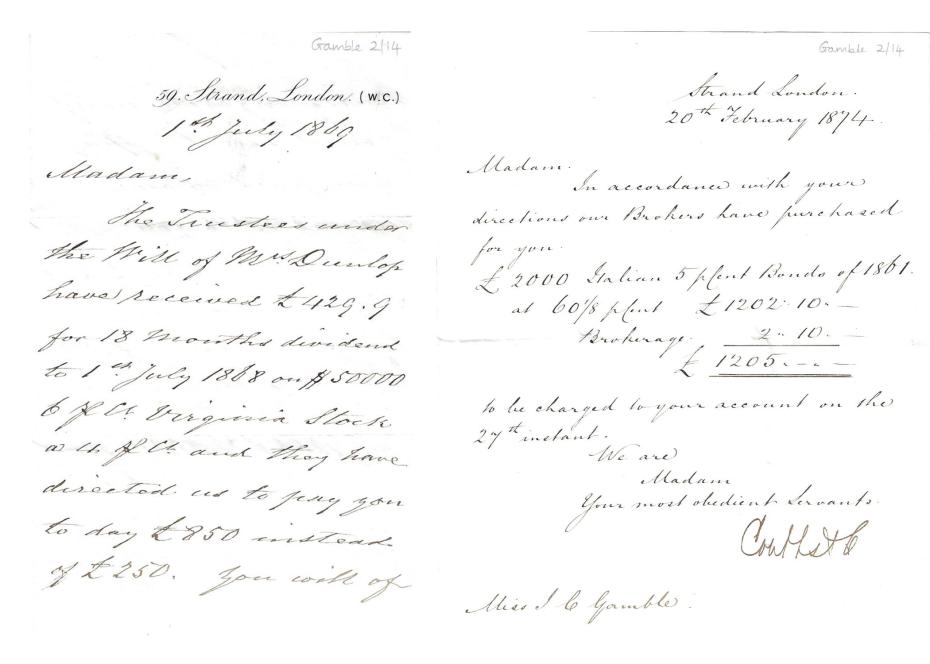 Gamble 2/14
59. Strand, London. (W.C.)
1st July 1869
Madam,
The Trustees under
the Will of Mrs Dunlop
have received £429.9
for 18 Months dividend
to 1st July 1868 on $50000
6 p Ct. Virginia Stock
a 4 p Ct. and they have
directed us to pay you
to day £850 instead
of £250. You will of
Gamble 2/14
Strand London.
20th February 1874.
Madam.
In accordance with your
directions our Brokers have purchased
for you.
£2000 Italian 5 p Cent Bonds of 1861.
at 60 1/8 p Cent £1202.10.—
Brokerage. 2.. 10. —
£ 1205.-.-
to be charged to your account on the
27th instant.
We are
Madam
Your most obedient Servants.
Coutts & Co
Miss J C Gamble.